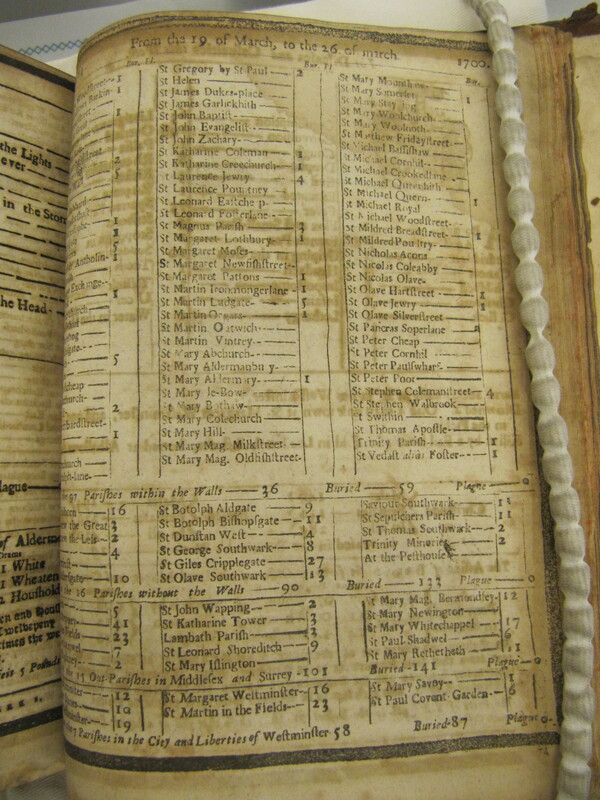 From the 19. of March, to the 26. of march. 1700.
Bur. Pl.
St Gregory by St Paul 2
St Helen
St James Dukes-place
St James Garlickhith
St John Baptist
St John Evangelist
St John Zachary
St Katharine Coleman 1
St Katharine Creechurch 1
St Laurence Jewry 4
St Laurence Pountney
St Leonard Eastcheap
St Leonard Fosterlane
St Magnus Parish 3
St Margaret Lothbury 1
St Margaret Moses
St Margaret Newfishstreet
St Margaret Pattons 1
St Martin Ironmongerlane 1
St Martin Ludgate 5
St Martin Orgars 1
St Martin Outwich
St Martin Vintrey
St Mary Abchurch
St Mary Aldermanbury
St Mary Aldermary 1
St Mary le-Bow
St Mary Bothaw
St Mary Colechurch
St Mary Hill
St Mary Mag. Milkstreet
St Mary Mag. Oldfishstreet
St Mary Mounthaw
St Mary Somerset 1
St Mary Stayning
St Mary Woolchurch
St Mary Woolnoth
St Matthew Fridaystreet
St Michael Bassishaw
St Michael Cornhil
St Michael Crookedlane
St Michael Queenhith
St Michael Quern
St Michael Royal 1
St Michael Woodstreet
St Mildred Breadstreet 1
St Mildred Poultry
St Nicholas Acons
St Nicolas Coleabby
St Nicolas Olave
St Olave Hartstreet 1
St Olave Jewry 1
St Olave Silverstreet
St Pancras Soperlane
St Peter Cheap
St Peter Cornhil
St Peter Paulswharf
St Peter Poor
St Stephen Colemanstreet 4
St Stephen Walbrook
St Swithin
St Thomas Apostle
Trinity Parish 1
St Vedast alias Foster 1
97 Parishes within the Walls 36 Buried 59 Plague 0
16
the Great 3
the Less 2
4
10
St Botolph Aldgate 9
St Botolph Bishopsgate 11
St Dunstan West 4
St George Southwark 8
St Giles Cripplegate 27
St Olave Southwark 13
Saviour Southwark 11
St Sepulchers Parish 11
St Thomas Southwark 2
Trinity Minories 2
At the Pesthouse
the 16 Parishes without the Walls 90 Buried 133 Plague 0
5
41
Fields 23
7
2
St John Wapping 2
St Katharine Tower 3
Lambath Parish 2
St Leonard Shoreditch 9
St Mary Islington
St Mary Mag. Bermondsey 12
St Mary Newington
St Mary Whitechappel 17
St Paul Shadwel 6
St Mary Retherith
15 Out-Parishes in Middlesex and Surrey 101 Buried 141 Plague 0
12
10
19
St Margaret Westminster 16
St Martin in the Fields 23
St Mary Savoy 1
St Paul Covent Garden 6
7 Parishes in the City and Liberties of Westminster 58 Buried 87 Plague 0